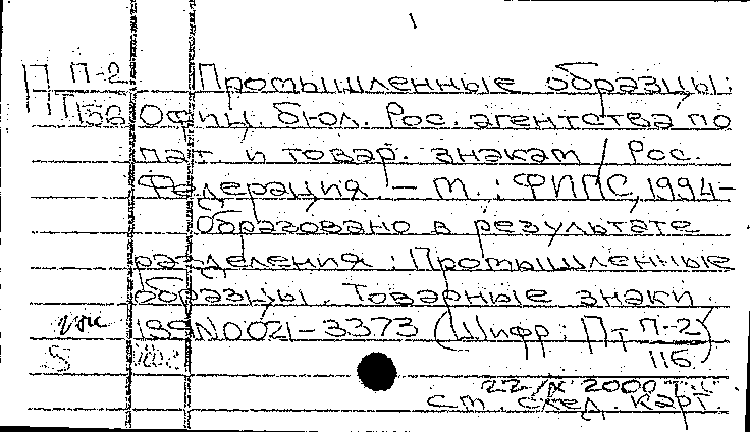 П-2 Промышленные образцы:
Пт 156 Офиц. бюл. Рос. агентства по
пат. и товар. знакам / Рос.
Федерация. - М.: ФИПС, 1994-
Образовано в результате
разделения: Промышленные
образцы. Товарные знаки.
ISSN 0021-3373 (Шифр: Пт П-2/116)
22/IX 2000 г.
см. след. карт.